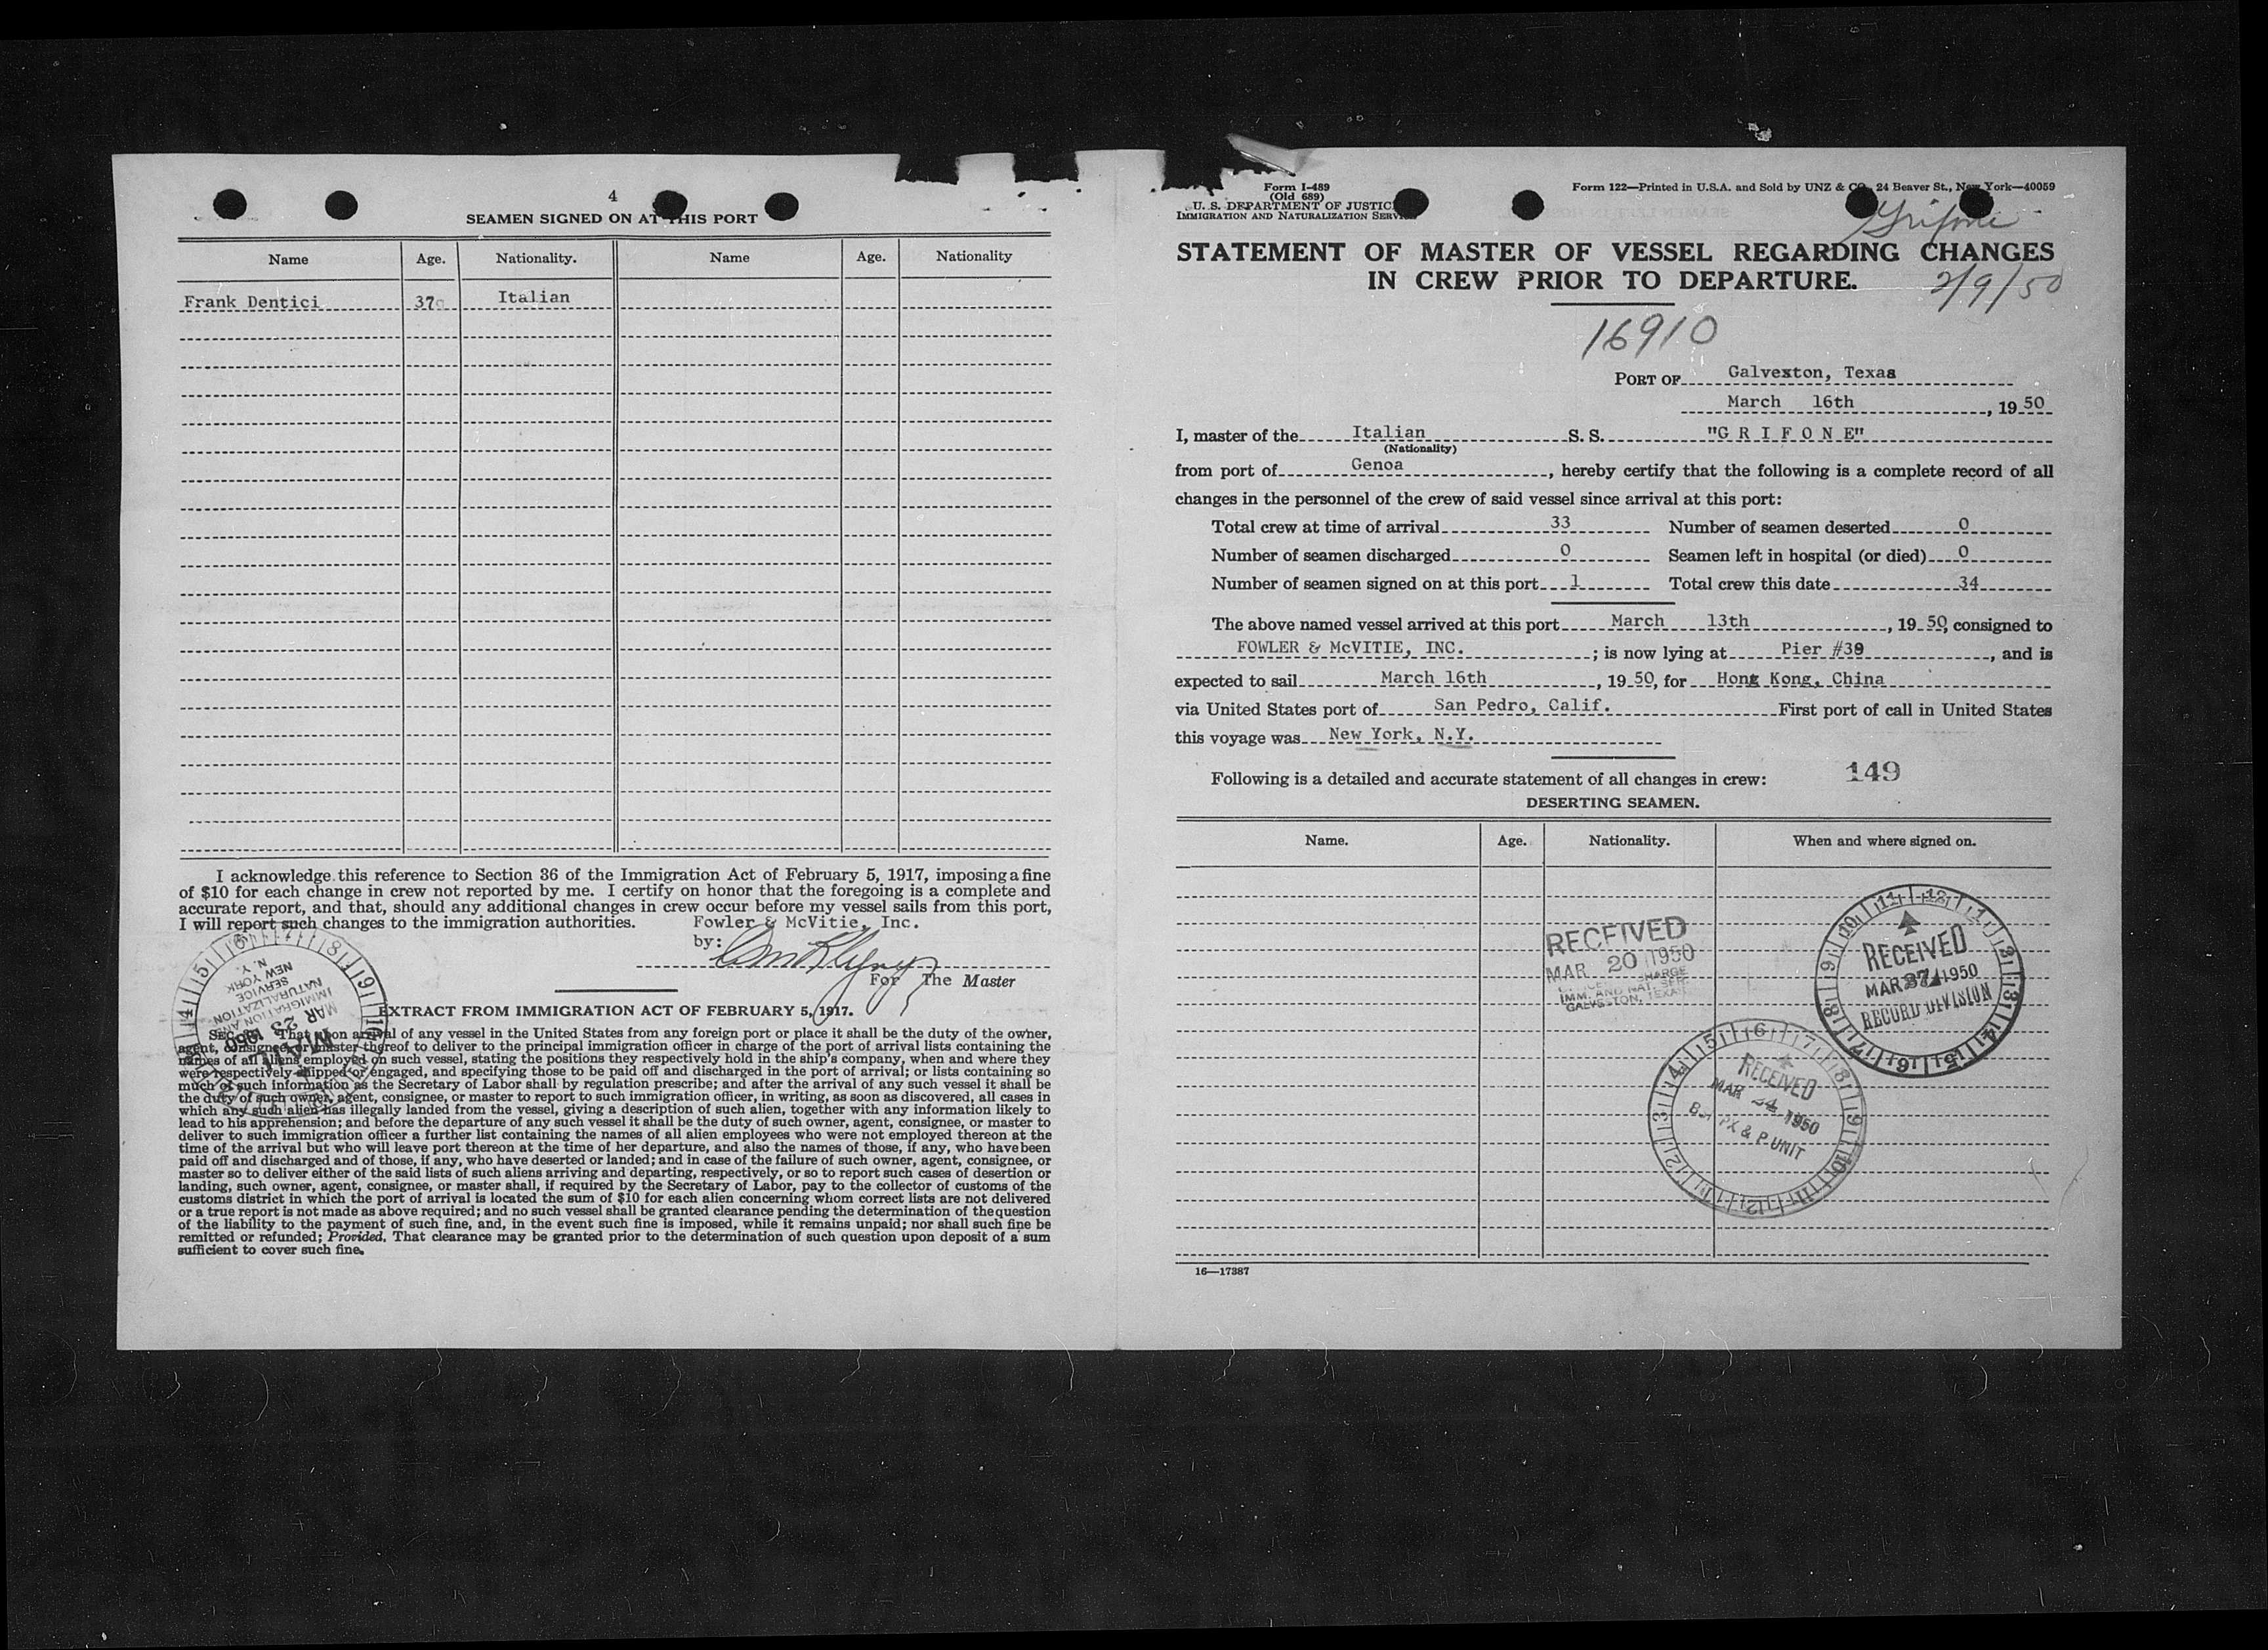 4
SEAMEN SIGNED ON AT THIS PORT
Name Age. Nationality. Name Age. Nationality
Frank Dentici 37 Italian
I acknowledge this reference to Section 36 of the Immigration Act of February 5, 1917, imposing a fine
of $10 for each change in crew not reported by me. I certify on honor that the foregoing is a complete and
accurate report, and that, should any additional changes in crew occur before my vessel sails from this port,
I will report such changes to the immigration authorities. Fowler & McVitie, Inc.
by:
For The Master
EXTRACT FROM IMMIGRATION ACT OF FEBRUARY 5, 1917.
SEC. That upon arrival of any vessel in the United States from any foreign port or place it shall be the duty of the owner,
agent, consignee, or master thereof to deliver to the principal immigration officer in charge of the port of arrival lists containing the
names of all aliens employed on such vessel, stating the positions they respectively hold in the ship's company, when and where they
were respectively shipped or engaged, and specifying those to be paid off and discharged in the port of arrival; or lists containing so
much of such information as the Secretary of Labor shall by regulation prescribe; and after the arrival of any such vessel it shall be
the duty of such owner, agent, consignee, or master to report to such immigration officer, in writing, as soon as discovered, all cases in
which any such alien has illegally landed from the vessel, giving a description of such alien, together with any information likely to
lead to his apprehension; and before the departure of any such vessel it shall be the duty of such owner, agent, consignee, or master to
deliver to such immigration officer a further list containing the names of all alien employees who were not employed thereon at the
time of the arrival but who will leave port thereon at the time of her departure, and also the names of those, if any, who have been
paid off and discharged and of those, if any, who have deserted or landed; and in case of the failure of such owner, agent, consignee, or
master so to deliver either of the said lists of such aliens arriving and departing, respectively, or so to report such cases of desertion or
landing, such owner, agent, consignee, or master shall, if required by the Secretary of Labor, pay to the collector of customs of the
customs district in which the port of arrival is located the sum of $10 for each alien concerning whom correct lists are not delivered
or a true report is not made as above required; and no such vessel shall be granted clearance pending the determination of the question
of the liability to the payment of such fine, and, in the event such fine is imposed, while it remains unpaid; nor shall such fine be
remitted or refunded; Provided, That clearance may be granted prior to the determination of such question upon deposit of a sum
sufficient to cover such fine.
IMMIGRATION AND
NATURALIZATION
SERVICE
NEW YORK
N. Y.
Form I-489
(Old 689)
U. S. DEPARTMENT OF JUSTICE
IMMIGRATION AND NATURALIZATION SERVICE
Form 122—Printed in U.S.A. and Sold by UNZ & CO., 24 Beaver St., New York—40059
Grifone
STATEMENT OF MASTER OF VESSEL REGARDING CHANGES
IN CREW PRIOR TO DEPARTURE.
2/9/50
16910
PORT OF Galvexton, Texas
March 16th, 19 50
I, master of the Italian S. S. "G R I F O N E"
(Nationality)
from port of Genoa, hereby certify that the following is a complete record of all
changes in the personnel of the crew of said vessel since arrival at this port:
Total crew at time of arrival 33 Number of seamen deserted 0
Number of seamen discharged 0 Seamen left in hospital (or died) 0
Number of seamen signed on at this port 1 Total crew this date 34
The above named vessel arrived at this port March 13th, 19 50, consigned to
FOWLER & McVITIE, INC.; is now lying at Pier #39, and is
expected to sail March 16th, 19 50, for Hong Kong, China
via United States port of San Pedro, Calif. First port of call in United States
this voyage was New York, N.Y.
Following is a detailed and accurate statement of all changes in crew: 149
DESERTING SEAMEN.
Name. Age. Nationality. When and where signed on.
RECEIVED
MAR 20 1950
IMM. AND NAT. SER.
GALVESTON, TEXAS
RECEIVED
MAR 1950
RECORD DIVISION
RECEIVED
MAR 1950
& P UNIT
16—17387